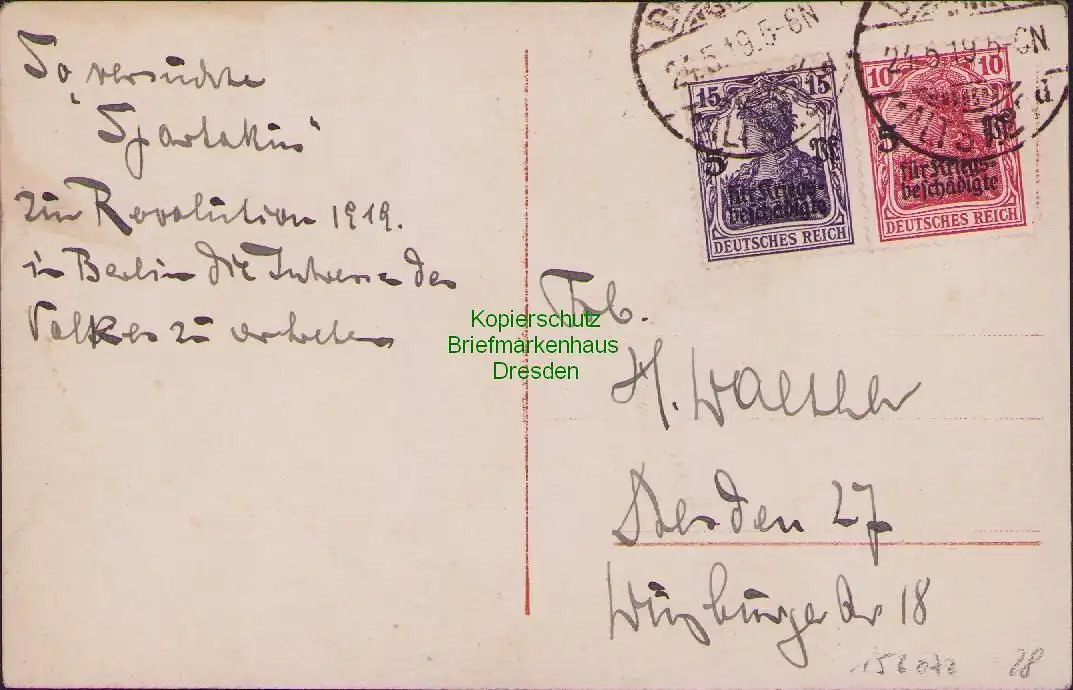 So „versuchte
Spartakus“
zur Revolution 1919.
in Berlin die Interessen des
Volkes zu vertreten
24.5.19.5-6N
ALTST
24.5.19.5-6N
ALTST
15 15
5 Pf
für Kriegs-
beschädigte
DEUTSCHES REICH
10 10
5 Pf
für Kriegs-
beschädigte
DEUTSCHES REICH
Kopierschutz
Briefmarkenhaus
Dresden
Frb.
H. Walther
Dresden 27
Würzburger Str 18
28